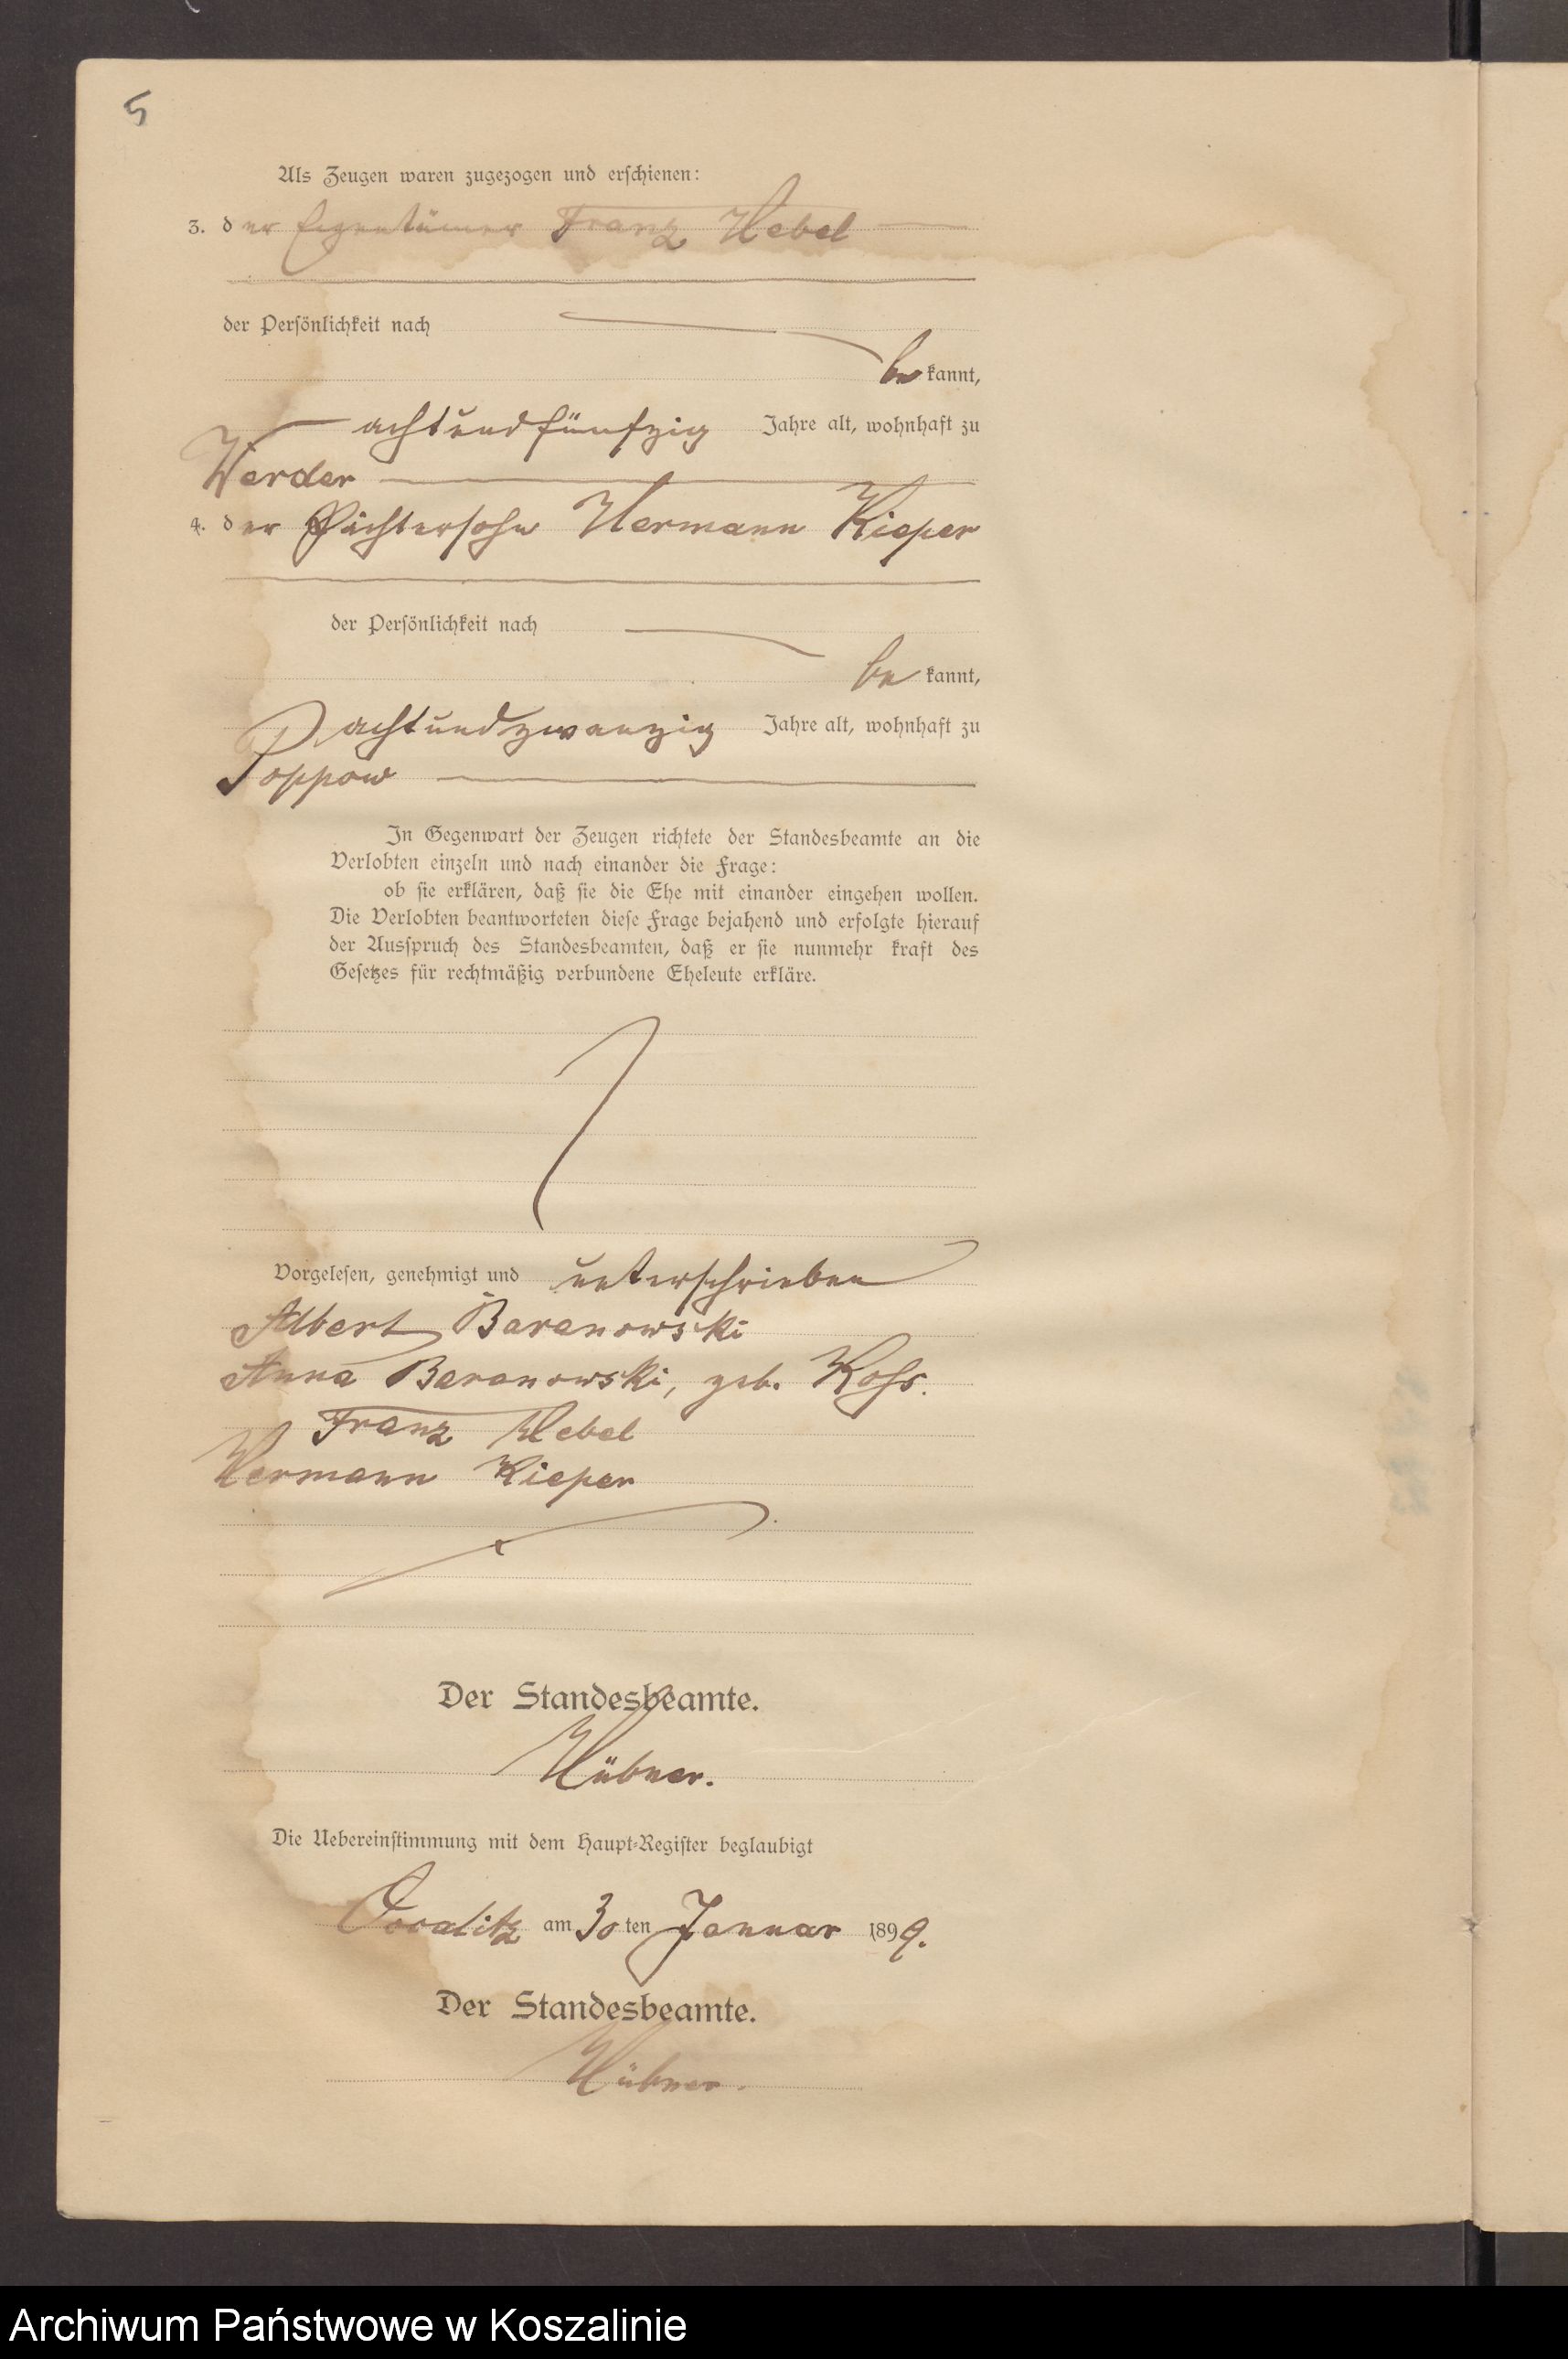 5
Als Zeugen waren zugezogen und erschienen:
3. der Eigentümer Franz Hebel
der Persönlichkeit nach
bekannt,
achtundfünfzig Jahre alt, wohnhaft zu
Werder
4. der Pächtersohn Hermann Kieper
der Persönlichkeit nach
bekannt,
achtundzwanzig Jahre alt, wohnhaft zu
Poppow
In Gegenwart der Zeugen richtete der Standesbeamte an die
Verlobten einzeln und nach einander die Frage:
ob sie erklären, daß sie die Ehe mit einander eingehen wollen.
Die Verlobten beantworteten diese Frage bejahend und erfolgte hierauf
der Ausspruch des Standesbeamten, daß er sie nunmehr kraft des
Gesetzes für rechtmäßig verbundene Eheleute erkläre.
Vorgelesen, genehmigt und unterschrieben
Albert Baranowski
Anna Baranowski, geb.
Franz Hebel
Hermann Kieper
Der Standesbeamte.
Hübner.
Die Uebereinstimmung mit dem Haupt-Register beglaubigt
am 30ten Januar 1899.
Der Standesbeamte.
Hübner.
Archiwum Państwowe w Koszalinie